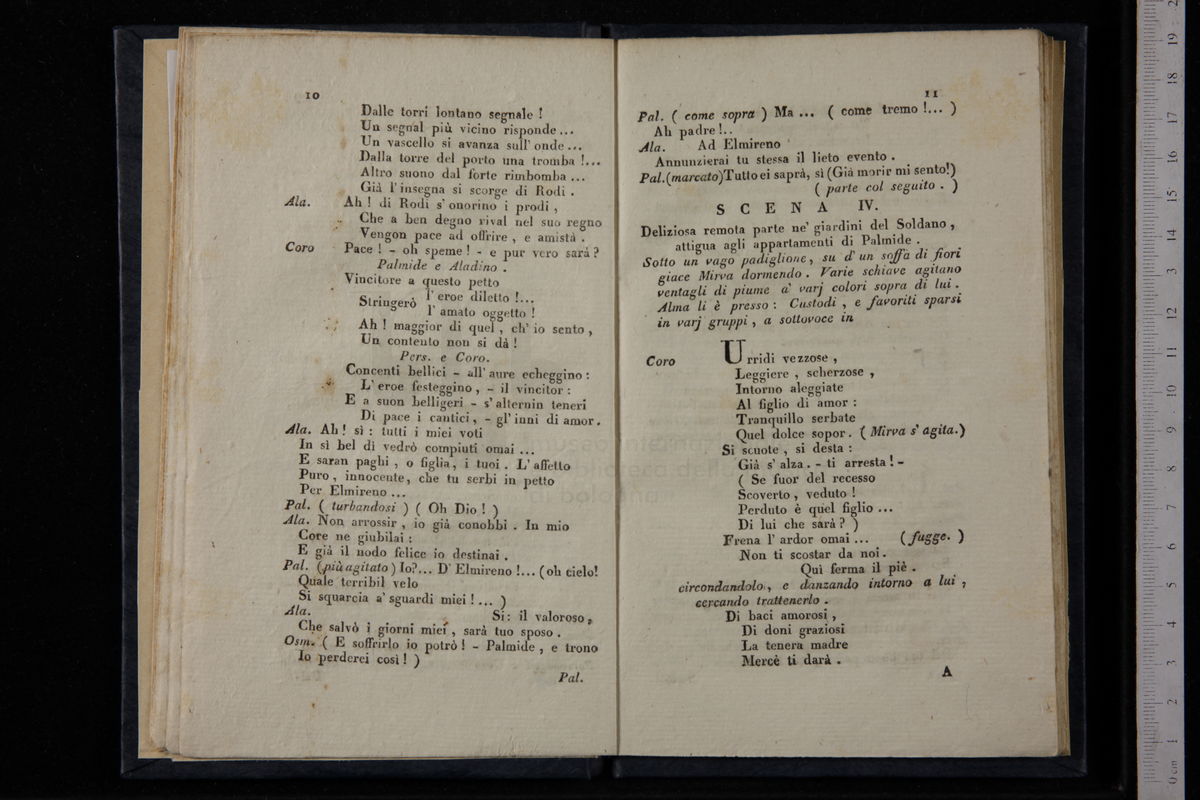 10
Dalle torri lontano segnale !
Un segnal più vicino risponde ...
Un vascello si avanza sull' onde ...
Dalla torre del porto una tromba !...
Altro suono dal forte rimbomba ...
Già l' insegna si scorge di Rodi .
Ala. Ah ! di Rodi s' onorino i prodi ,
Che a ben degno rival nel suo regno
Vengon pace ad offrire , e amistà .
Coro Pace ! - oh speme ! - e pur vero sarà ?
Palmide e Aladino .
Vincitore a questo petto
Stringerò l' eroe diletto !...
l' amato oggetto !
Ah ! maggior di quel , ch' io sento ,
Un contento non si dà !
Pers. e Coro.
Concenti bellici - all' aure echeggino :
L' eroe festeggino , - il vincitor :
E a suon belligeri - s' alternin teneri
Di pace i cantici , - gl' inni di amor .
Ala. Ah ! sì : tutti i miei voti
In sì bel dì vedrò compiuti omai ...
E saran paghi , o figlia , i tuoi . L' affetto
Puro , innocente, che tu serbi in petto
Per Elmireno ...
Pal. ( turbandosi ) ( Oh Dio ! )
Ala. Non arrossir , io già conobbi . In mio
Core ne giubilai :
E già il nodo felice io destinai .
Pal. (più agitato) Io?... D' Elmireno !... (oh cielo!
Quale terribil velo
Si squarcia a' sguardi miei !... )
Ala. Si : il valoroso,
Che salvò i giorni miei , sarà tuo sposo .
Osm. ( E soffrirlo io potrò ! - Palmide , e trono
Io perderei così ! )
Pal.
11
Pal. ( come sopra ) Ma ... ( come tremo !... )
Ah padre !..
Ala. Ad Elmireno
Annunzierai tu stessa il lieto evento .
Pal.(marcato)Tutto ei saprà, sì (Già morir mi sento!)
( parte col seguito . )
SCENA IV.
Deliziosa remota parte ne' giardini del Soldano ,
attigua agli appartamenti di Palmide .
Sotto un vago padiglione, su d' un soffà di fiori
giace Mirva dormendo . Varie schiave agitano
ventagli di piume a' varj colori sopra di lui .
Alma li è presso : Custodi , e favoriti sparsi
in varj gruppi , a sottovoce in
Coro Urridi vezzose ,
Leggiere , scherzose ,
Intorno aleggiate
Al figlio di amor :
Tranquillo serbate
Quel dolce sopor . ( Mirva s' agita.)
Si scuote , si desta :
Già s' alza . - ti arresta ! -
( Se fuor del recesso
Scoverto , veduto !
Perduto è quel figlio ...
Di lui che sarà ? )
Frena l' ardor omai ... (fugge. )
Non ti scostar da noi .
Quì ferma il piè .
circondandolo , e danzando intorno a lui ,
cercando trattenerlo .
Di baci amorosi ,
Di doni graziosi
La tenera madre
Mercè ti darà .
A